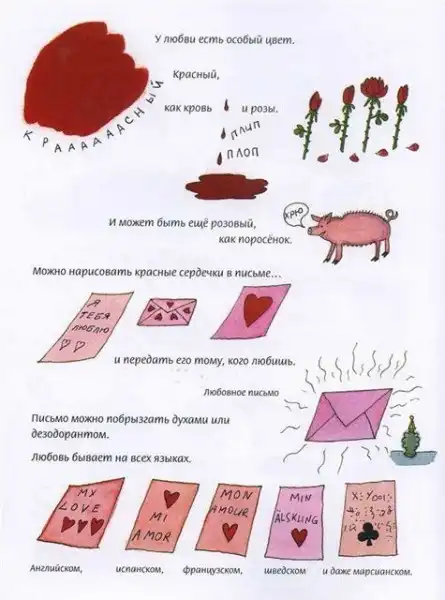 У любви есть особый цвет.
КРАААААААСНЫЙ
Красный,
как кровь и розы.
ПЛИП
ПЛОП
И может быть ещё розовый,
как поросёнок.
ХРЮ
Можно нарисовать красные сердечки в письме...
Я
ТЕБЯ
ЛЮБЛЮ
и передать его тому, кого любишь.
Любовное письмо
Письмо можно побрызгать духами или
дезодорантом.
Любовь бывает на всех языках.
MY
LOVE
MI
AMOR
MON
AMOUR
MIN
ÄLSKLING
Английском, испанском, французском, шведском и даже марсианском.